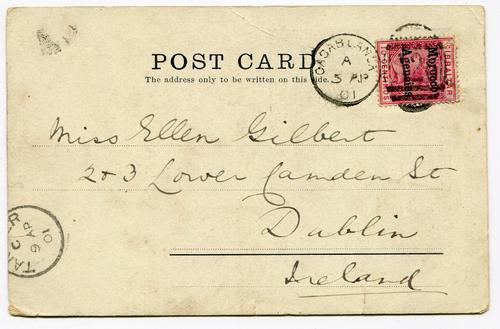 POST CARD.
The address only to be written on this side.
CASABLANCA
A
5 AP
01
GIBRALTAR
Morocco
Agencies
Miss Ellen Gilbert
2&3 Lower Camden St
Dublin
Ireland
TANGIER
6 AP
01